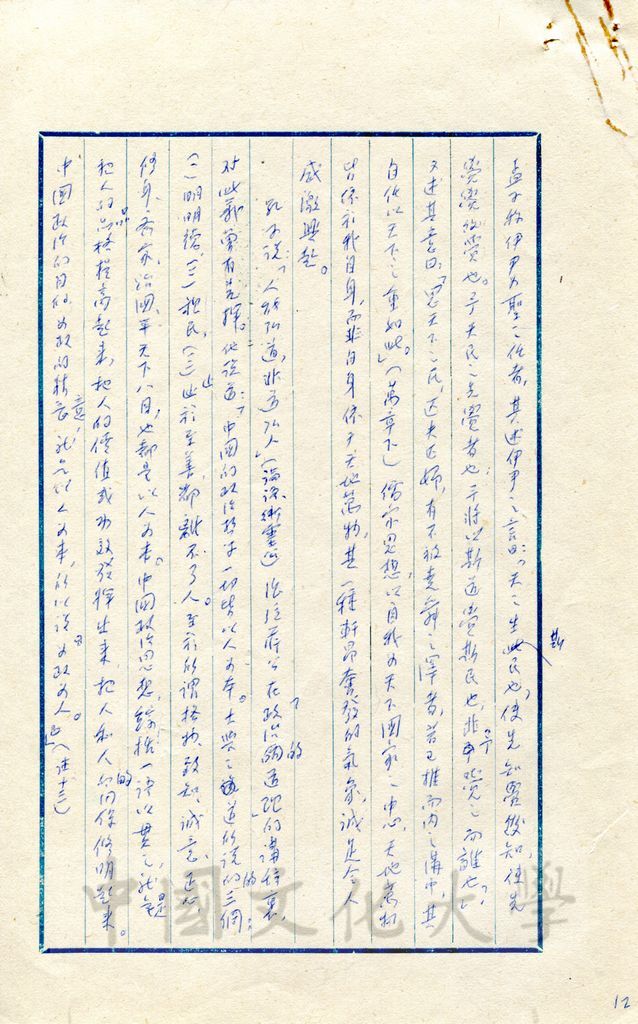 孟子稱伊尹為聖之任者,其述伊尹之言曰:「天之生斯民也,使先知覺後知,使先
覺覺後覺也。予天民之先覺者也,予將以斯道覺斯民也,非予覺之而誰也?」
又述其意曰:「思天下之民,匹夫匹婦,有不被堯舜之澤者,若己推而內之溝中,其
自任以天下之重如此。」(萬章下)儒家思想以自我為天下國家之中心,天地萬物
皆係於我自身,而非自身係于天地萬物,其一種軒昂奮發的氣象,誠足令人
感激興起。
孔子說:「人能弘道,非道弘人」(論語衛靈公)總統蔣公在「政治的道理」的講詞裏,
對此義嘗有發揮。他說道:「中國的政治哲學一切皆以人為本。大學之道所說的三個的:
(一)明明德、(二)親民、(三)止於至善,都離不了人。至於所謂格物、致知、誠意、正心、
修身、齊家、治國、平天下八目,也都是以人為本。中國政治思想,綜括一語以貫之,就是
把人的品格提高起來,把人的價值或功效發揮出來,把人和人的關係修明起來。
中國政治的目的,為政的精意,就是以人為本,所以說為政為人。」(註十三)
12
中國文化大學